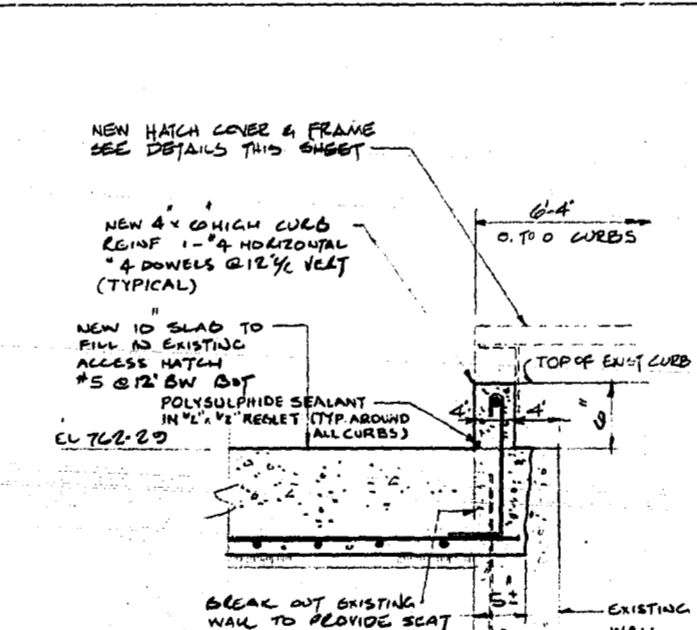 NEW HATCH COVER & FRAME
SEE DETAILS THIS SHEET
6'-4"
O. TO O CURBS
NEW 4" x 6" HIGH CURB
REINF 1-#4 HORIZONTAL
#4 DOWELS @ 12" c/c VERT
(TYPICAL)
NEW 10" SLAB TO
FILL IN EXISTING
ACCESS HATCH
#5 @ 12" BW BOT
TOP OF EXIST CURB
POLYSULPHIDE SEALANT
IN 1/2" x 1/2" REGLET (TYP. AROUND
ALL CURBS)
4"
4"
6"
EL 762.29
BREAK OUT EXISTING
WALL TO PROVIDE SEAT
5"±
EXISTING
WALL